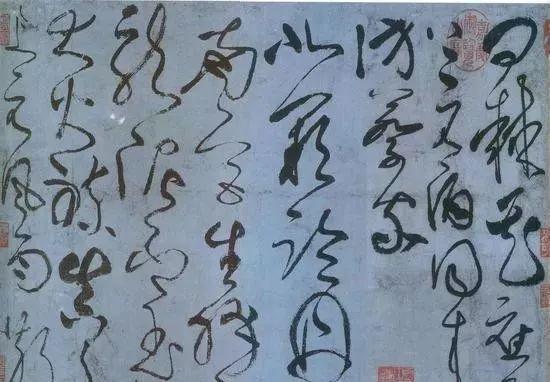 问棘花应
上元酒同来
访蔡家
北阙临丹
南宫生绛
龙泥印玉
大火炼真
上元风雨散